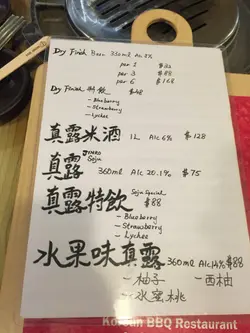 Dry Finish Beer 350ml Alc 5%
per 1 $32
per 3 $88
per 6 $168
Dry Finish 特飲 $48
- Blueberry
- Strawberry
- Lychee
真露米酒 1L Alc 6% $128
JINRO
Soju
真露 360ml Alc 20.1% $75
真露特飲 Soju Special $88
- Blueberry
- Strawberry
- Lychee
水果味真露 360ml Alc 14% $88
- 柚子 - 西柚
- 水蜜桃
Korean BBQ Restaurant